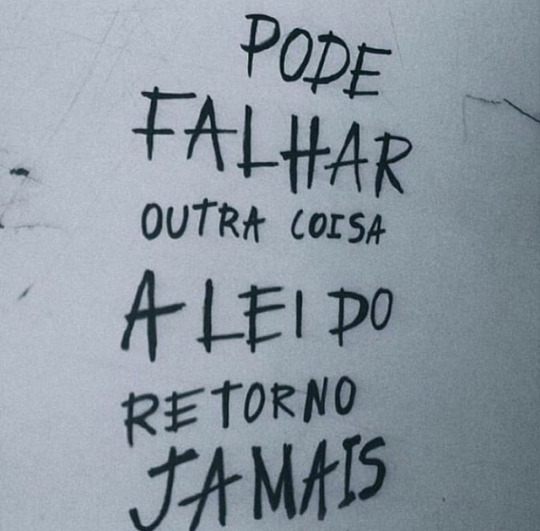 PODE
FALHAR
OUTRA COISA
A LEI DO
RETORNO
JAMAIS